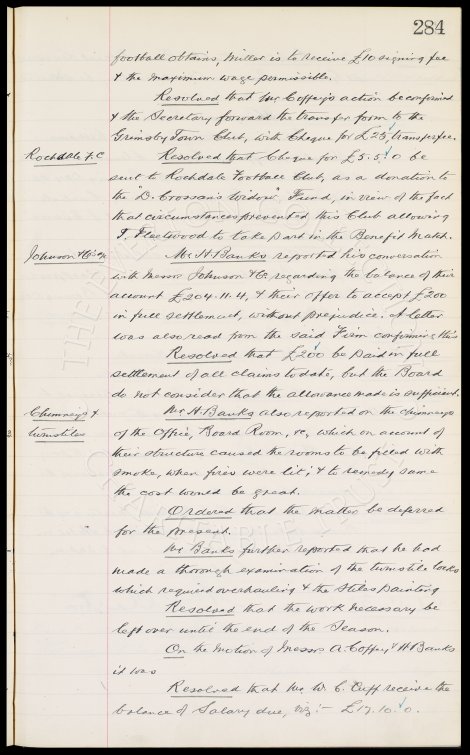 284
football obtains, Miller is to receive £10 signing fee
& the maximum wage permissible.
Resolved that Mr Coffey's action be confirmed
& the Secretary forward the transfer form to the
Grimsby Town Club, with Cheque for £25 transfer fee.
Rochdale F.C
Resolved that Cheque for £5.5.0 be
sent to Rochdale Football Club, as a donation to
the "D. Crossan's Widow" Fund, in view of the fact
that circumstances prevented this Club allowing
T. Fleetwood to take part in the Benefit Match.
Johnson & Co
Mr H. Banks reported his conversation
with Messrs Johnson & Co. regarding the balance of their
account £204.11.4, & their offer to accept £200
in full settlement, without prejudice. A letter
was also read from the said Firm confirming this
Resolved that £200 be paid in full
settlement of all claims to date, but the Board
do not consider that the allowance made is sufficient.
Chimneys &
turnstiles
Mr H. Banks also reported on the chimneys
of the Office, Board Room, &c, which on account of
their structure caused the rooms to be filled with
smoke, when fires were lit; & to remedy same
the cost would be great.
Ordered that the matter be deferred
for the present.
Mr Banks further reported that he had
made a thorough examination of the turnstile locks
which required overhauling & the Stiles painting
Resolved that the work necessary be
left over until the end of the Season.
On the motion of Messrs A. Coffey & H Banks
it was
Resolved that Mr W. C. Cuff receive the
balance of Salary due, viz :- £17.10.0.